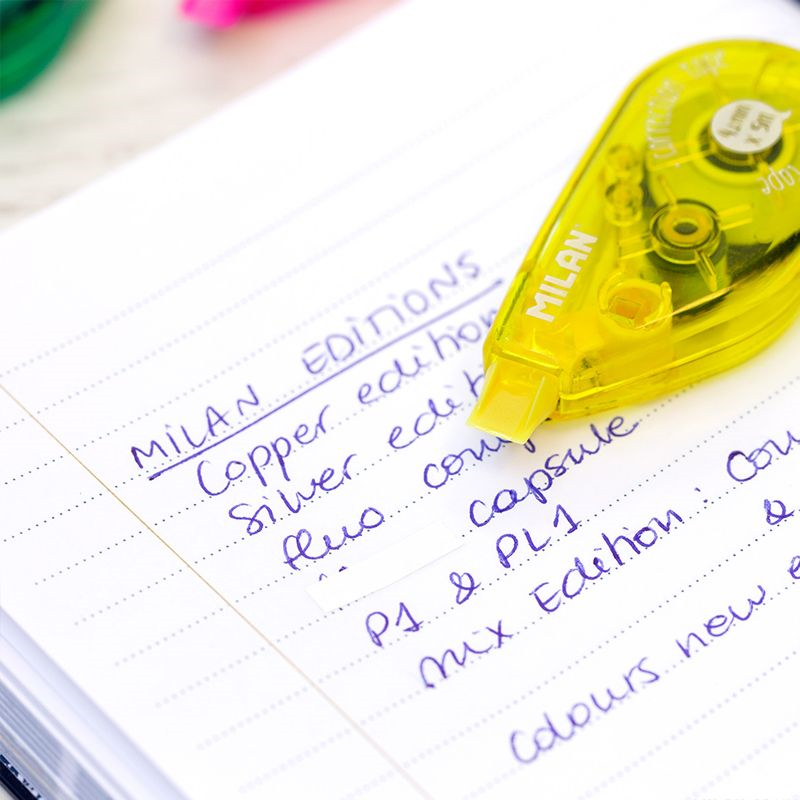 MILAN EDITIONS
Copper edition
Silver edit
fluo com
capsule
P1 & PL1
mix Edition: Con
&
Colours new e
MILAN
correction tape
4,2mm
x 5m
tape